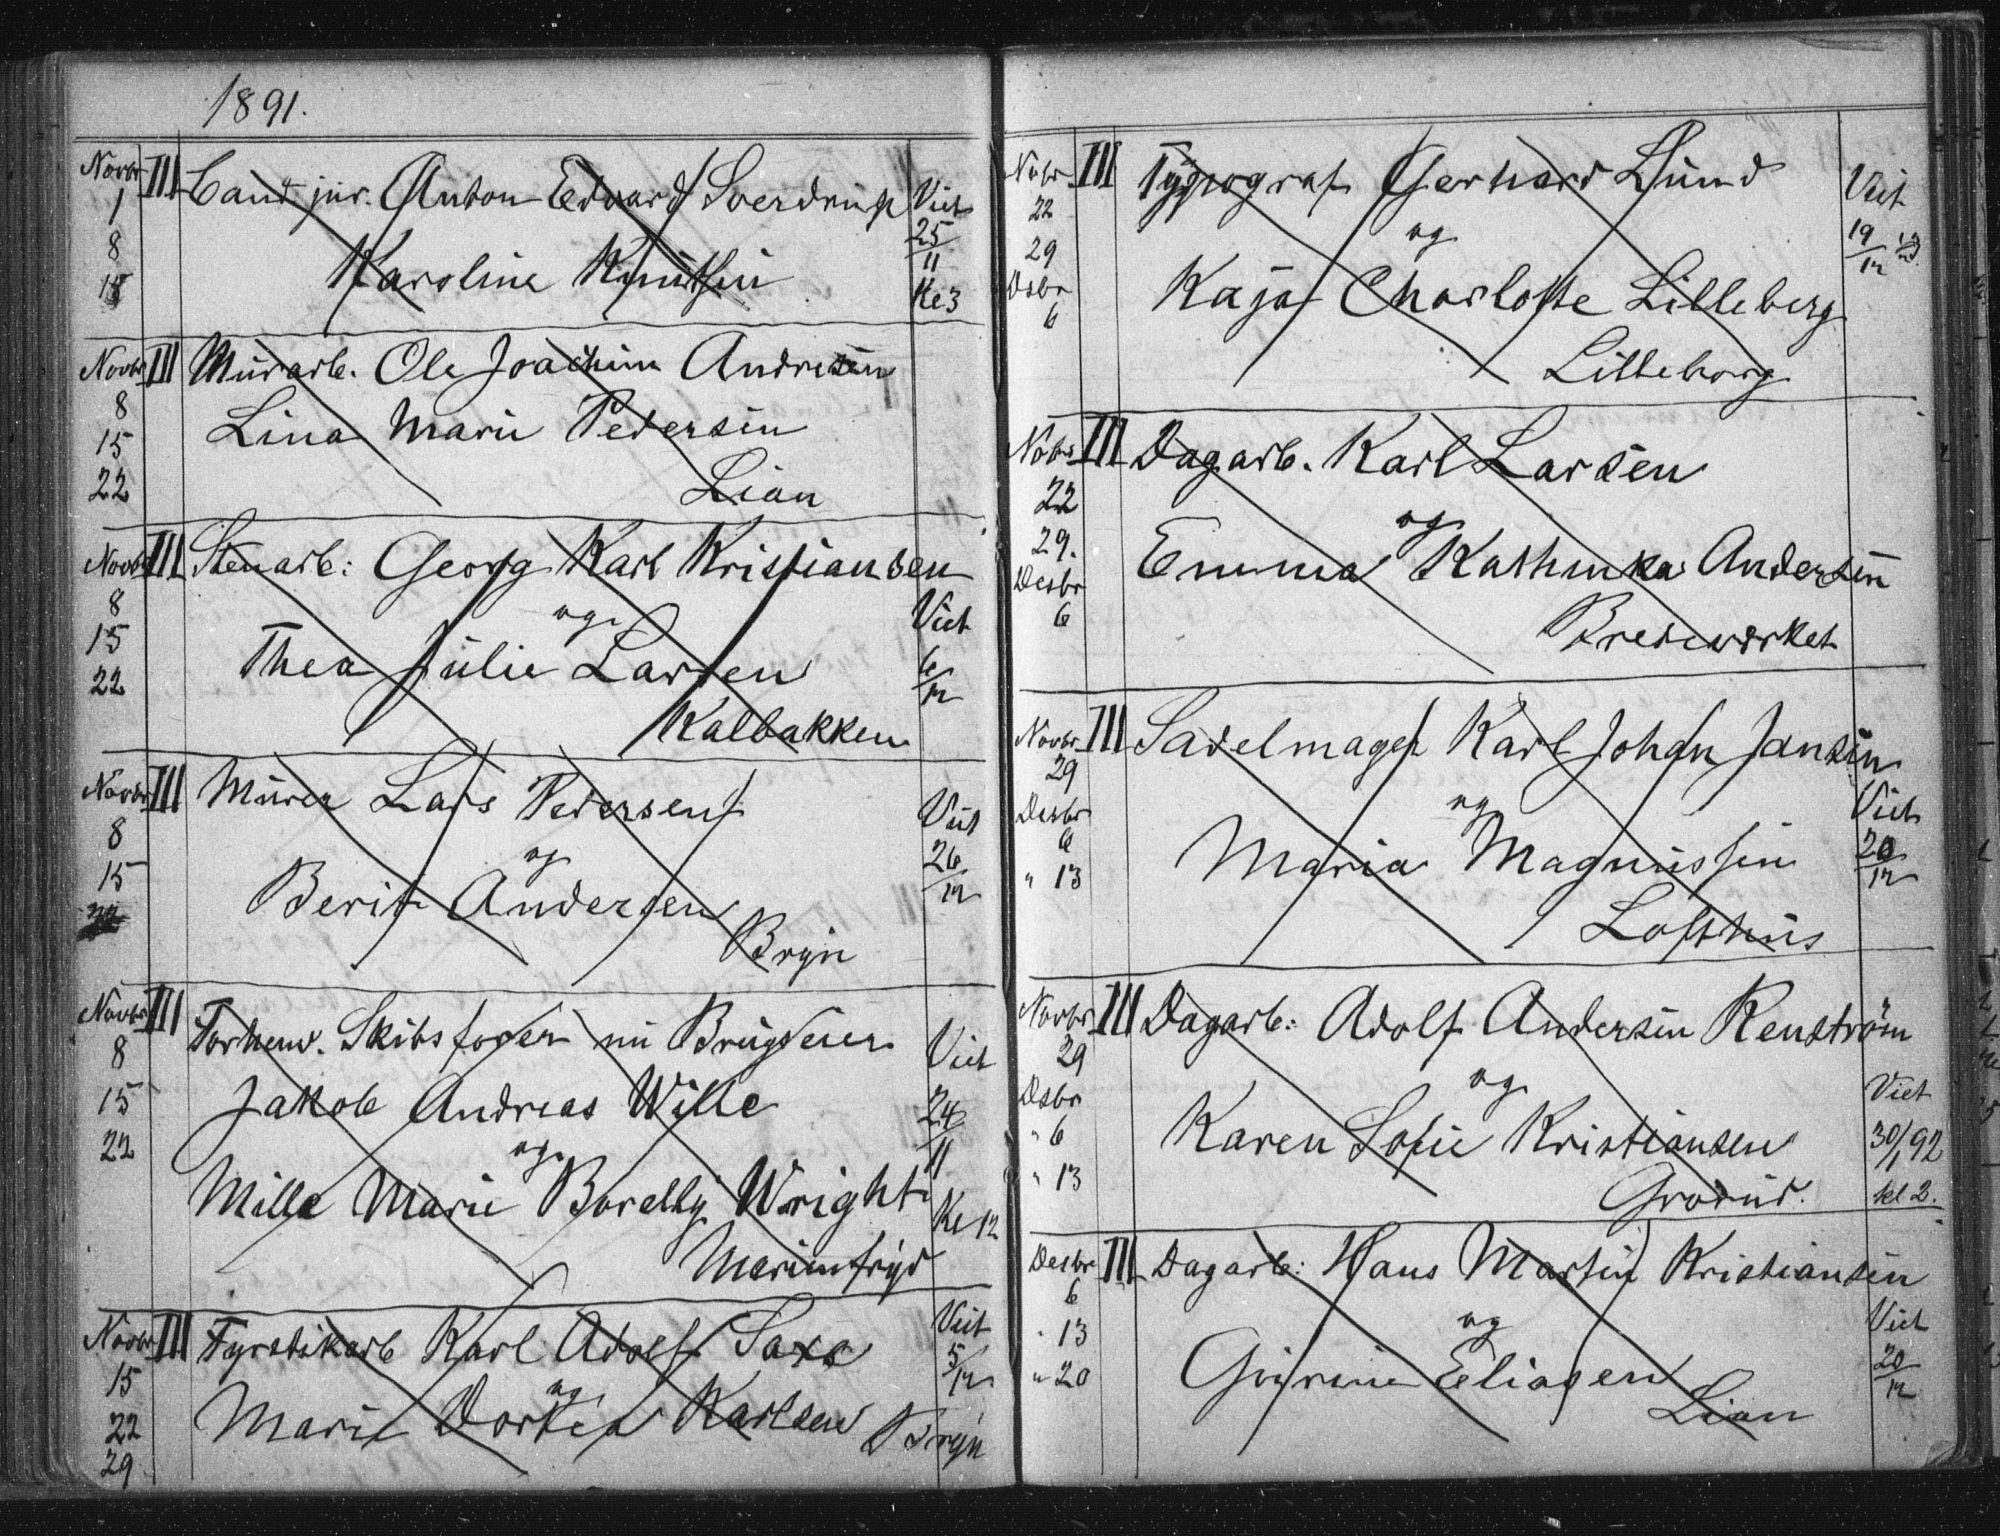 1891.
Novbr III Cand jur. Anton Edvard Sverdrup Viet
1 25/11
8 Karoline Knutsen
15 Kl 3
Novbr III Murarb. Ole Joachim Andresen
8
15 Lina Marie Pedersen
22 Lian
Novbr III Stenarb: Georg Karl Kristiansen
8 og Viet
15 Thea Julie Larsen 6/12
22 Kalbakken
Novbr III Murer Lars Pedersen Viet
8 og 26/12
15 Berit Andersen
Bryn
Novbr III Forhenv. Skibsfører nu Brugseier
8 Viet
15 Jakob Andreas Wille 24/11
22 og
Mille Marie Borelly Wright Kl 12
Marienfryd
Novbr III Fyrstikarb Karl Adolf Saxe Viet
15 og 5/12
22 Marie Dortea Karlsen Bryn
29
Nobr III Typograf Gerhard Lund Viet
22 og 19/12
29
Dsbr Kaja Charlotte Lilleberg
6 Lilleborg
Nobr III Dagarb. Karl Larsen
22 og
29. Emma Kathinka Andersen
Desbr
6 Bredeværket
Novbr III Sadelmager Karl Johan Jansen
29 og Viet
Desbr 20/12
6 Maria Magnussen
" 13 Lofthus
Novbr III Dagarb: Adolf Andersen Renström
29 og Viet
Dsbr
" 6 Karen Sofie Kristiansen 30/1 92
" 13 Grorud. kl 2.
Desbr III Dagarb: Hans Martin Kristiansen
6 og Viet
" 13 Gurine Eliasen 20/12
" 20 Lian